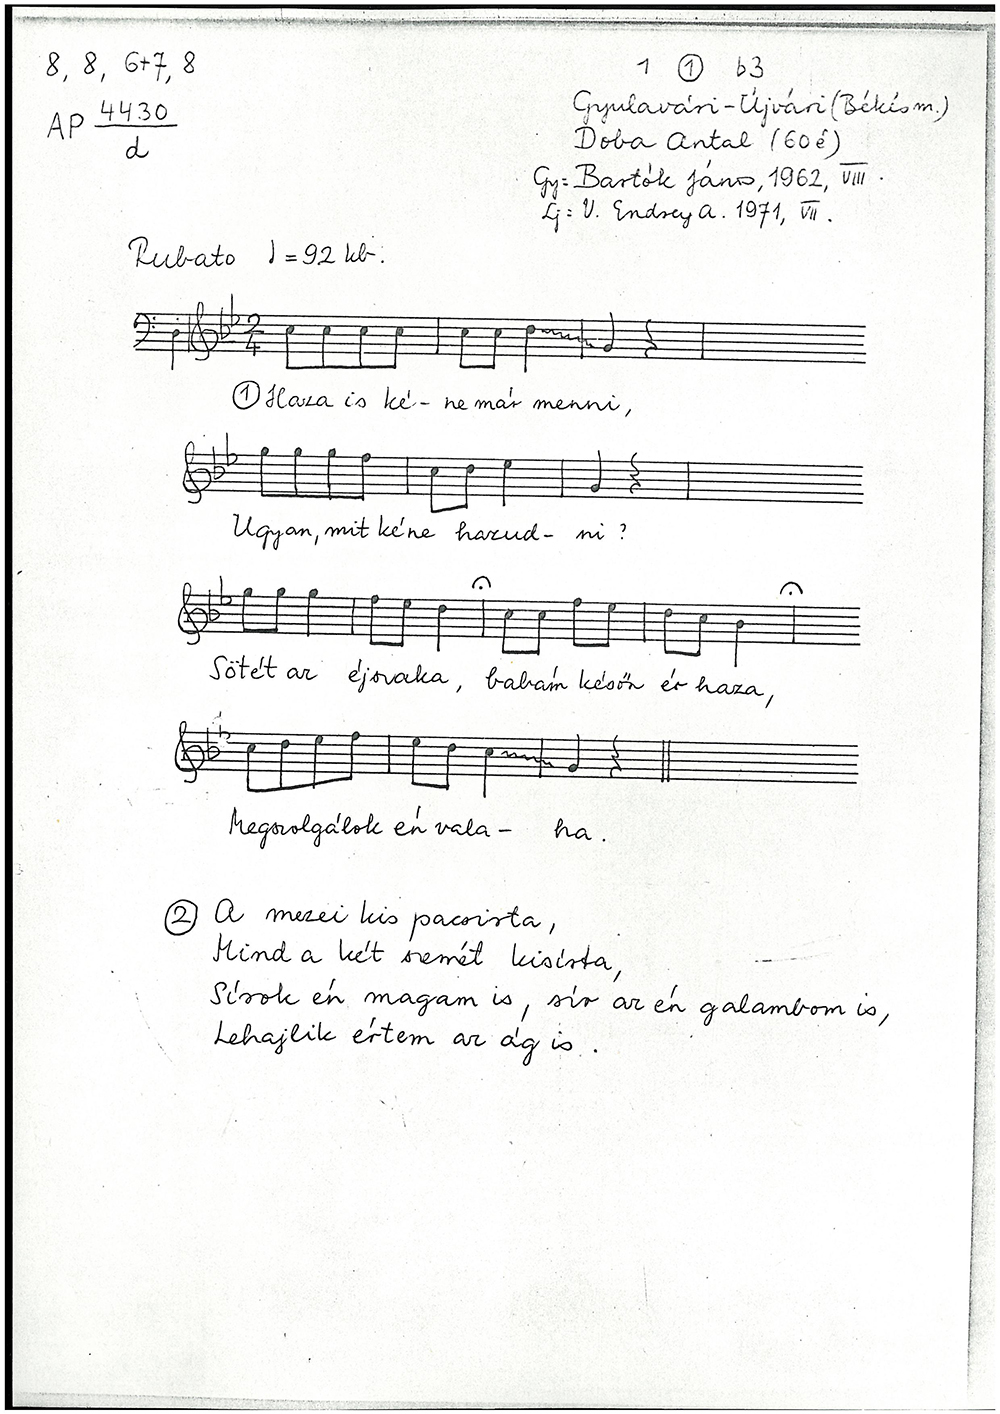 8, 8, 6+7, 8
AP 4430/d
1 ① b3
Gyulavári-Újvári (Békés m.)
Doba Antal (60 é)
Gy= Bartók János, 1962, VIII.
Lj= V. Endrey A. 1971, VII.
Rubato ♩=92 kb.
① Haza is ké- ne már menni,
Ugyan, mit kéne hazud- ni?
Sötét az éjszaka, babám későn ér haza,
Megszolgálok én vala- ha.
② A mezei kis pacsirta,
Mind a két szemét kisírta,
Sírok én magam is, sír az én galambom is,
Lehajlik értem az ág is.